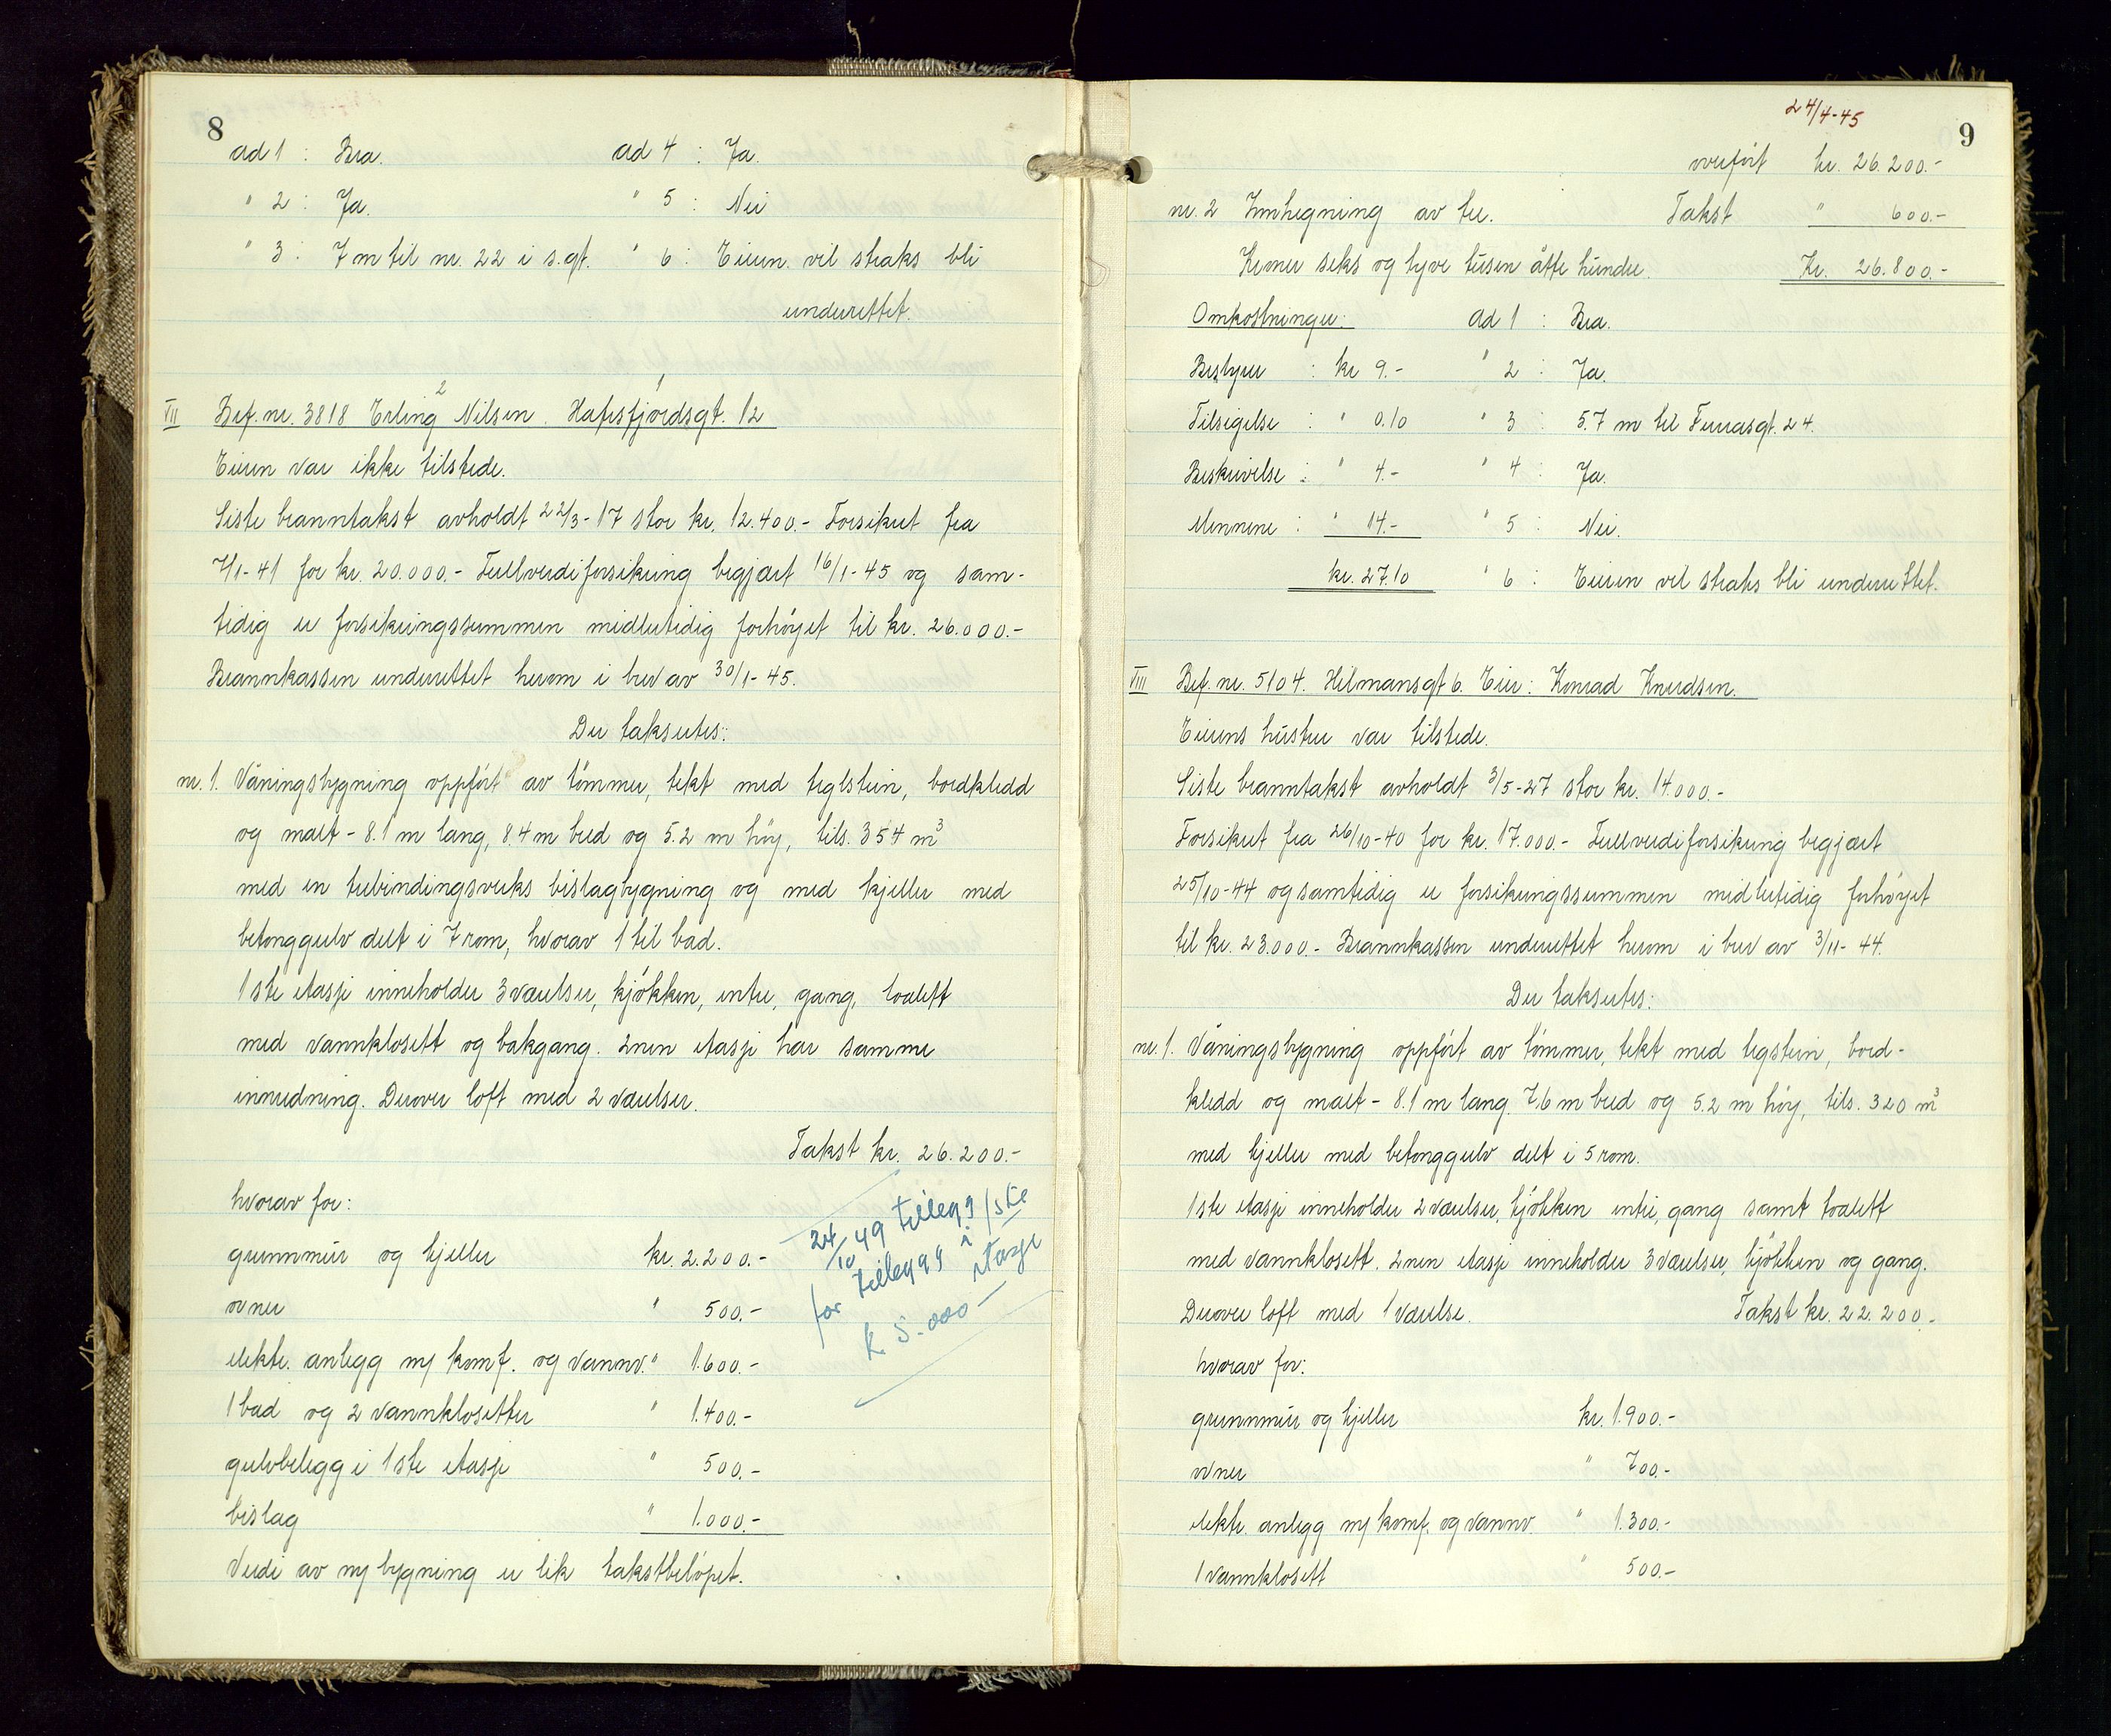 8
ad 1 : Bra. ad 4 : Ja.
" 2 : Ja. " 5 : Nei
" 3 : 7 m til nr. 22 i s.gt. " 6 : Eieren vil straks bli
underrettet.
VII Bef. nr. 3818 Erling 2 Nilsen 1. Hafrsfjordsgt. 12
Eieren var ikke tilstede.
Siste branntakst avholdt 22/3-17 stor kr. 12.400.- Forsikret fra
7/1-41 for kr. 20.000.- Fullverdiforsikring begjært 16/1-45 og sam-
tidig er forsikringssummen midlertidig forhøyet til kr. 26.000.-
Brannkassen underrettet herom i brev av 30/1-45.
Der takseres:
nr. 1. Våningsbygning oppført av tømmer, tekt med teglstein, bordkledd
og malt - 8.1 m lang, 8.4 m bred og 5.2 m høy, tils. 354 m3
med en trebindingsverks bislagbygning og med kjeller med
betonggulv delt i 7 rom, hvorav 1 til bad.
1ste etasje inneholder 3 værelser, kjøkken, entre, gang, toalett
med vannklosett og bakgang. 2nen etasje har samme
innredning. Derover loft med 2 værelser.
Takst kr. 26.200.-
hvorav for:
grunnmur og kjeller kr. 2.200.-
ovner " 500.-
elektr. anlegg m/ komf. og vannv. " 1.600.-
1 bad og 2 vannklosetter " 1.400.-
gulvbelegg i 1ste etasje " 500.-
bislag " 1.000.-
Verdi av ny bygning er lik takstbeløpet.
24/10 49 tillegg
for tillegg i 1ste etasje
k 5.000 -
24/4-45
9
overført kr. 26.200.-
nr. 2 Innhegning av tre. Takst " 600.-
Kroner seks og tyve tusen åtte hundre. Kr. 26.800.-
Omkostninger: ad 1 : Bra.
Bestyrer : kr 9.- " 2 : Ja.
Tilsigelse : " 0.10 " 3 : 5.7 m til Furrasgt. 24.
Beskrivelse : " 4.- " 4 : Ja.
Mennene : " 14.- " 5 : Nei.
kr. 27.10 " 6 : Eieren vil straks bli underrettet.
VIII Bef. nr. 5104. Hilmansgt 6. Eier: Konrad Knudsen.
Eierens hustru var tilstede.
Siste branntakst avholdt 3/5-27 stor kr. 14.000.-
Forsikret fra 26/10-40 for kr. 17.000.- Fullverdiforsikring begjært
25/10-44 og samtidig er forsikringssummen midlertidig forhøyet
til kr. 23.000.- Brannkassen underrettet herom i brev av 3/11-44.
Der takseres:
nr. 1. Våningsbygning oppført av tømmer, tekt med teglstein, bord-
kledd og malt - 8.1 m lang 7,6 m bred og 5.2 m høy, tils. 320 m3
med kjeller med betonggulv delt i 5 rom.
1ste etasje inneholder 2 værelser, kjøkken entre, gang samt toalett
med vannklosett. 2nen etasje inneholder 3 værelser, kjøkken og gang.
Derover loft med 1 værelse. Takst kr. 22.200.-
hvorav for:
grunnmur og kjeller kr. 1.900.-
ovner " 700.-
elektr. anlegg m/ komf. og vannv. " 1.300.-
1 vannklosett " 500.-